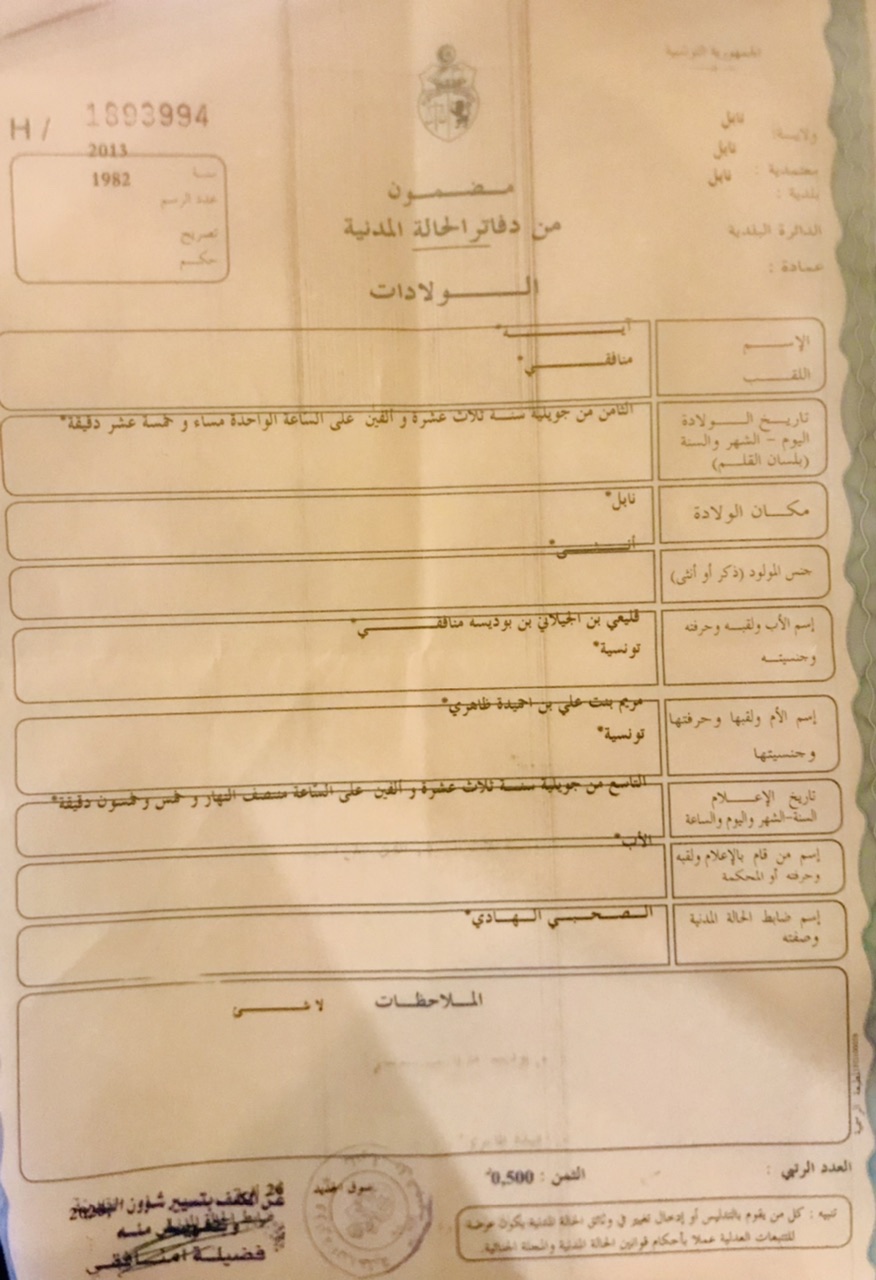 الجمهورية التونسية
ولاية : نابل
معتمدية : نابل
بلدية : نابل
الدائرة البلدية
عمادة :
H / 1893994
سنة 2013
عدد الرسم 1982
تصريح
حكم
مضمون
من دفاتر الحالة المدنية
الولادات
الإسم آية*
اللقب منافقي*
تاريخ الولادة
اليوم - الشهر والسنة
(بلسان القلم)
الثامن من جويلية سنة ثلاث عشرة و ألفين على الساعة الواحدة مساء و خمسة عشر دقيقة*
مكان الولادة
نابل*
جنس المولود (ذكر أو أنثى)
أنثى*
إسم الأب ولقبه وحرفته
وجنسيته
قليعي بن الجيلاني بن بوديسه منافقي*
تونسية*
إسم الأم ولقبها وحرفتها
وجنسيتها
مريم بنت علي بن احميدة ظاهري*
تونسية*
تاريخ الإعلام
السنة-الشهر واليوم والساعة
التاسع من جويلية سنة ثلاث عشرة و ألفين على الساعة منصف النهار و خمس وخمسون دقيقة*
إسم من قام بالإعلام ولقبه
وحرفته أو المحكمة
الأب*
إسم ضابط الحالة المدنية
وصفته
الصحبي الهادي*
الملاحظات
لا شئ
العدد الرتبي :
الثمن : 0,500
تنبيه : كل من يقوم بالتدليس أو إدخال تغيير في وثائق الحالة المدنية يكون عرضة
للتتبعات العدلية عملا بأحكام قوانين الحالة المدنية والمجلة الجنائية.
سوق الجديد
26
عن المكلف بتسيير شؤون
منه
فضيلة امنافقي